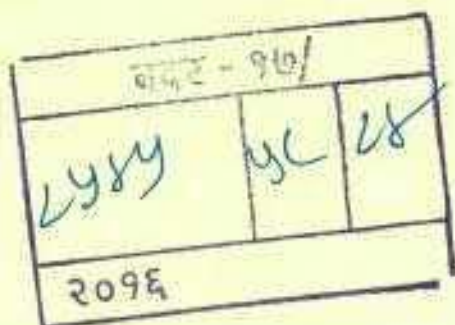 - १७/
८५४५ ५८ ८४
२०१६